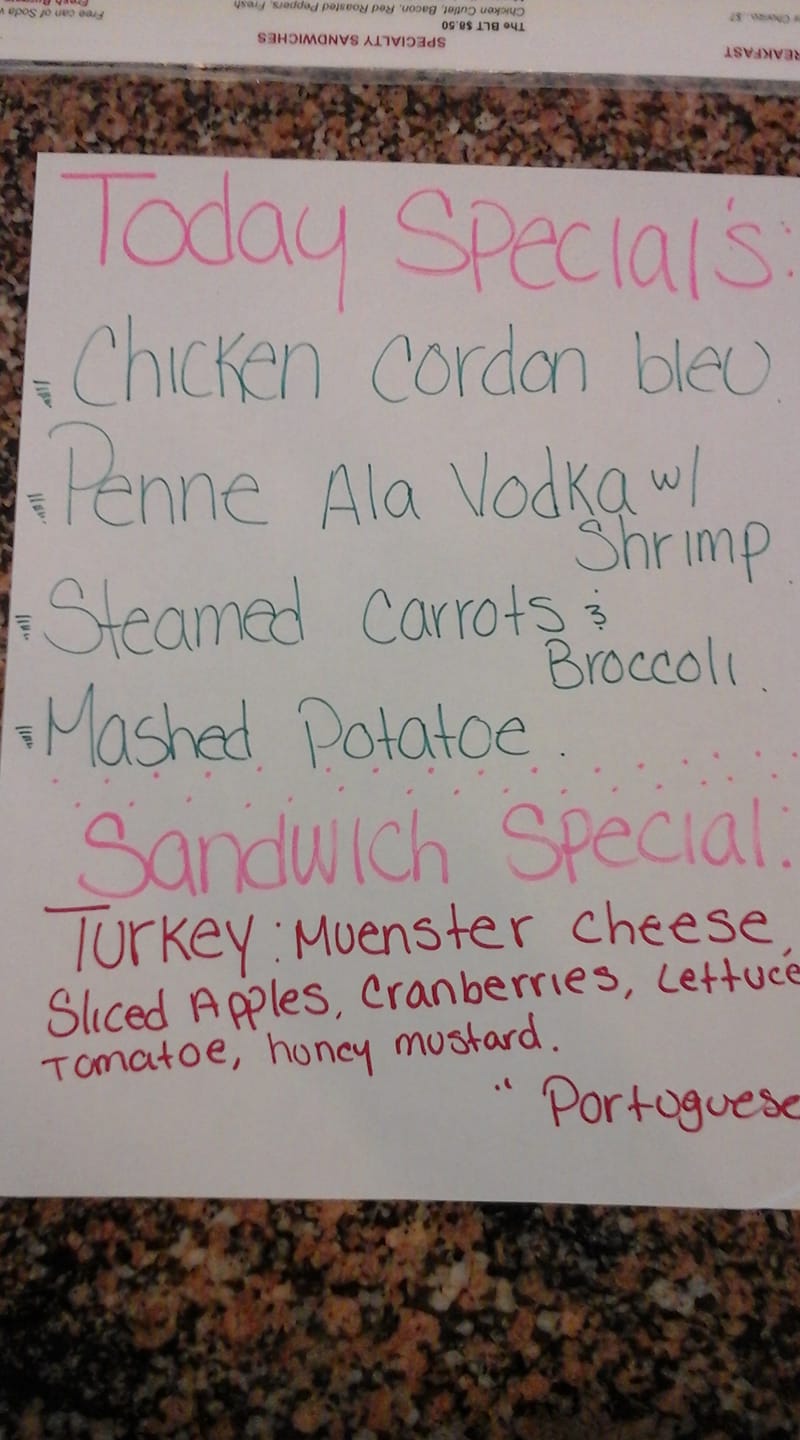 Free can of Soda
The BLT $8.50
Chicken Cutlet, Bacon, Red Roasted Peppers, Fresh
SPECIALTY SANDWICHES
Today Special's:
Chicken Cordon bleu.
Penne Ala Vodka w/
Shrimp.
Steamed Carrots &
Broccoli.
Mashed Potatoe.
Sandwich Special:
Turkey: Muenster cheese,
Sliced Apples, Cranberries, Lettuce
Tomatoe, honey mustard.
" Portuguese